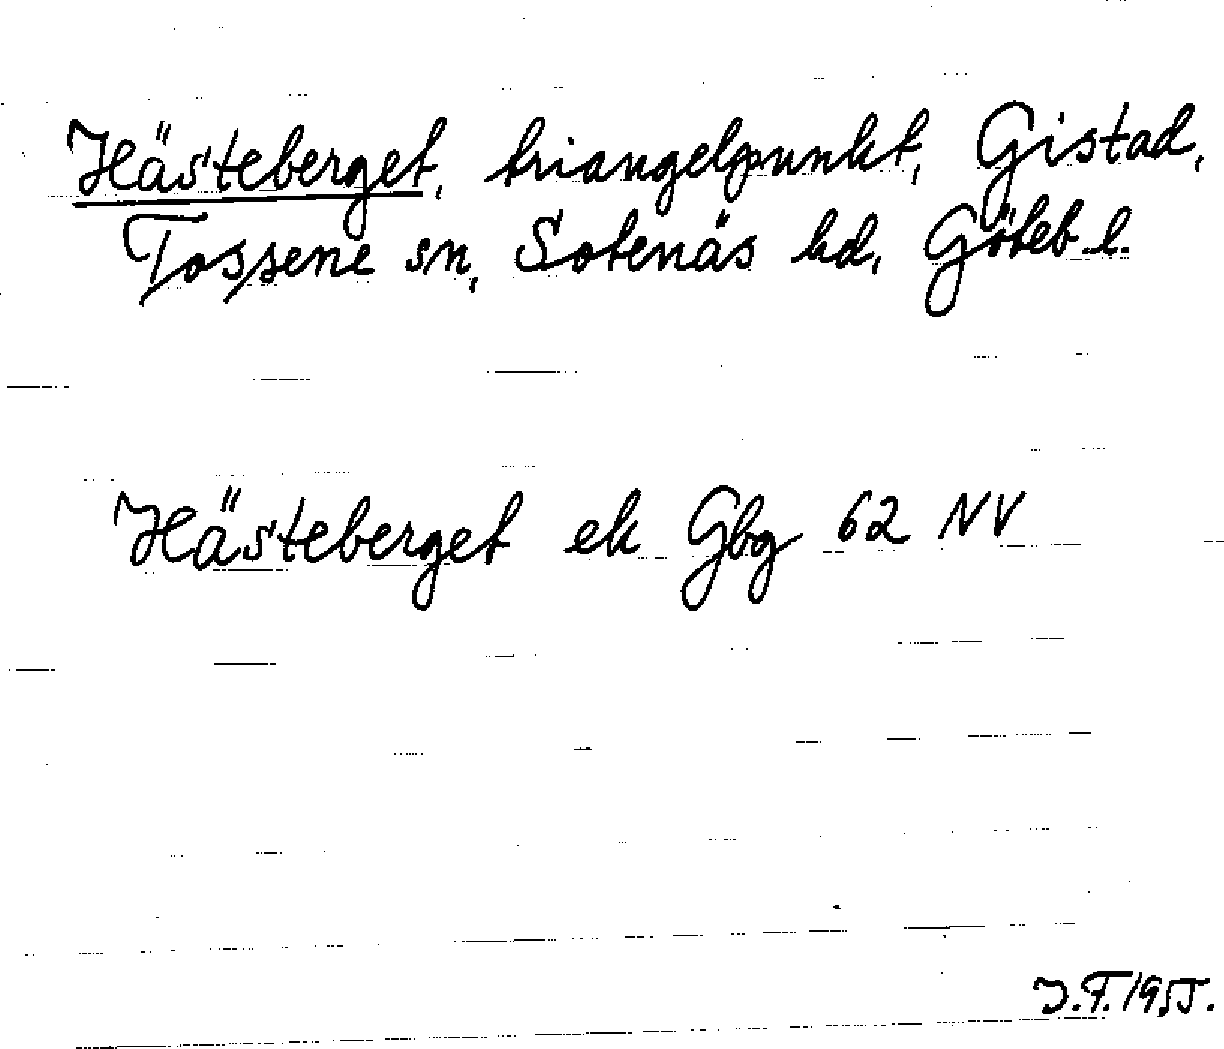 Hästeberget, triangelpunkt, Gistad,
Tossene sn, Sotenäs hd, Göteb. l.
Hästeberget ek Gbg 62 NV
J.F. 1955.